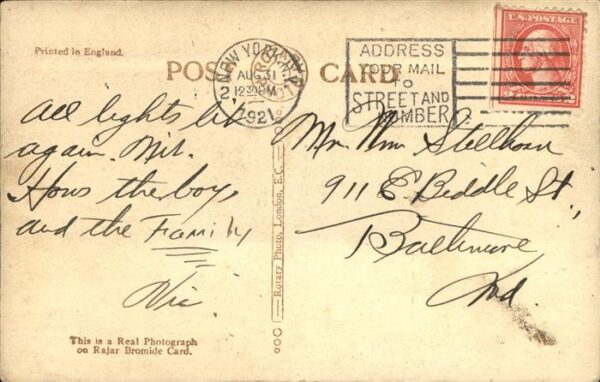 Printed in England.
POST CARD
NEW YORK, N.Y.
AUG 31
12 30 PM
1921
2
ADDRESS
YOUR MAIL
TO
STREET AND
NUMBER
U.S. POSTAGE
All lights lit
again. Mit.
Hows the boys
and the Family
Vic.
Mr. Wm Stellhorn
911 E. Biddle St,
Baltimore
Md.
Rotary Photo, London, E.C.
This is a Real Photograph
on Rajar Bromide Card.